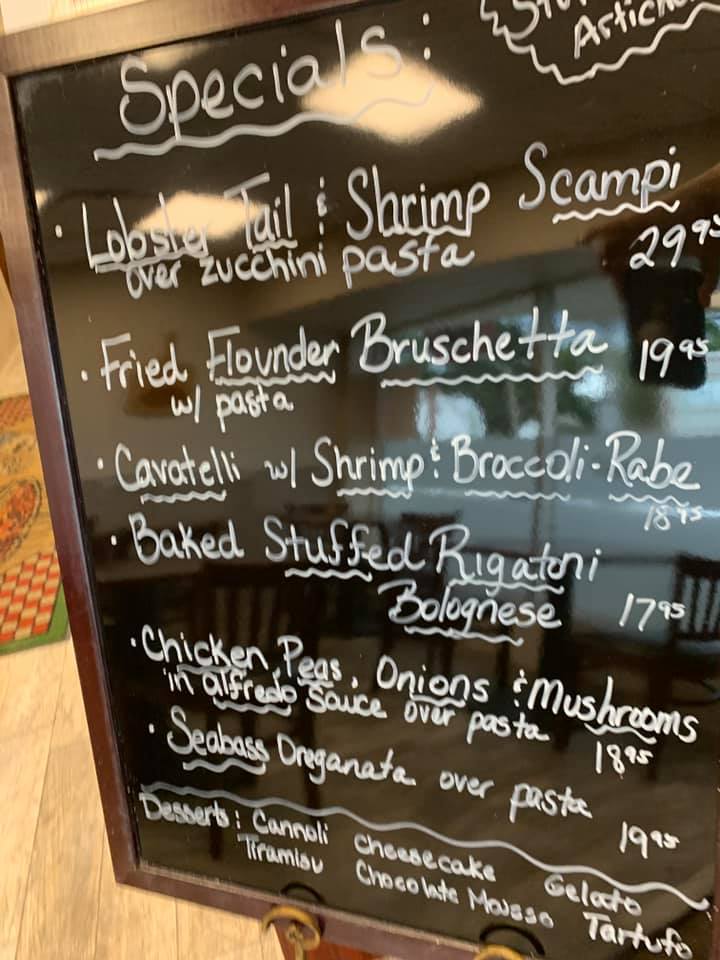 Specials:
Lobster Tail & Shrimp Scampi
over zucchini pasta 29.95
Fried Flounder Bruschetta 19.95
w/ pasta
Cavatelli w/ Shrimp & Broccoli-Rabe
18.95
Baked Stuffed Rigatoni
Bolognese 17.95
Chicken, Peas, Onions & Mushrooms
in alfredo sauce over pasta 18.95
Seabass Oreganata over pasta
19.95
Desserts: Cannoli cheesecake Gelato
Tiramisu Chocolate Mousso Tartufo